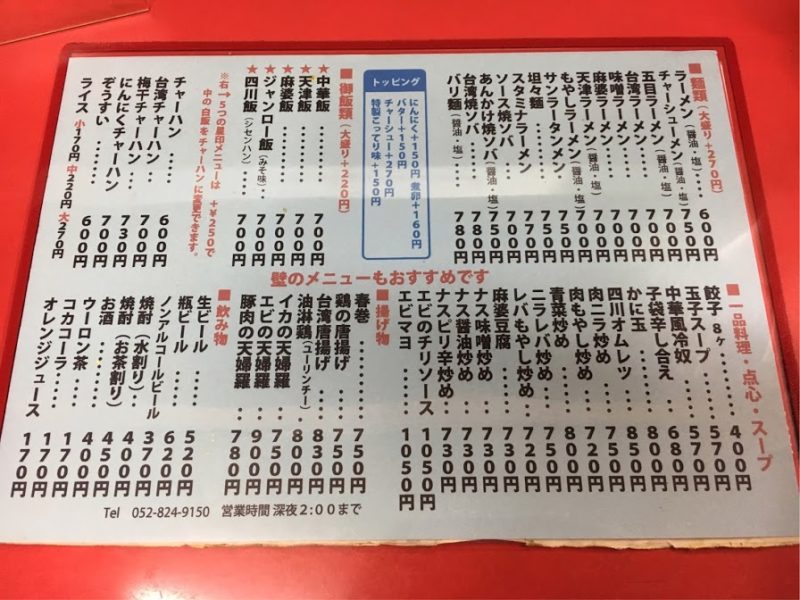 ■麺類(大盛り+270円)
ラーメン(醤油・塩)‥‥600円
チャーシューメン(醤油・塩)750円
五目ラーメン(醤油・塩)‥700円
台湾ラーメン‥‥‥700円
味噌ラーメン‥‥‥700円
麻婆ラーメン‥‥‥700円
天津ラーメン(醤油・塩)‥700円
もやしラーメン(醤油・塩)700円
サンラータンメン‥‥750円
坦々麺‥‥‥‥‥750円
スタミナラーメン‥‥770円
ソース焼ソバ‥‥‥700円
あんかけ焼ソバ(醤油・塩)750円
台湾焼ソバ‥‥‥‥780円
バリ麺(醤油・塩)‥‥780円
トッピング
にんにく+150円 煮卵+160円
バター+150円
チャーシュー+270円
特製こってり味+150円
■御飯類(大盛り+220円)
★中華飯‥‥‥‥700円
★天津飯‥‥‥‥700円
★麻婆飯‥‥‥‥700円
★ジャンロー飯(みそ味)‥700円
★四川飯(ジセンハン)‥700円
※右→5つの星印メニューは +¥250で
中の白飯をチャーハンに変更できます。
チャーハン‥‥‥600円
台湾チャーハン‥‥700円
梅干チャーハン‥‥730円
にんにくチャーハン 700円
ぞうすい‥‥‥‥600円
ライス 小170円 中220円 大270円
壁のメニューもおすすめです
■一品料理・点心・スープ
餃子 8ヶ‥‥‥‥400円
玉子スープ‥‥‥570円
中華風冷奴‥‥‥570円
子袋辛し合え‥‥680円
かに玉‥‥‥‥850円
四川オムレツ‥‥800円
肉ニラ炒め‥‥‥750円
肉もやし炒め‥‥800円
青菜炒め‥‥‥‥800円
ニラレバ炒め‥‥750円
レバもやし炒め‥720円
麻婆豆腐‥‥‥‥750円
ナス味噌炒め‥‥730円
ナス醤油炒め‥‥730円
ナスピリ辛炒め‥730円
エビのチリソース 1050円
エビマヨ‥‥‥1050円
■揚げ物
春巻‥‥‥‥‥750円
鶏の唐揚げ‥‥‥750円
台湾唐揚げ‥‥‥830円
油淋鶏(ユーリンチー)‥800円
イカの天婦羅‥‥750円
エビの天婦羅‥‥900円
豚肉の天婦羅‥‥780円
■飲み物
生ビール‥‥‥‥520円
瓶ビール‥‥‥‥620円
ノンアルコールビール 370円
焼酎(水割り)‥‥400円
焼酎(お茶割り)‥450円
お酒‥‥‥‥‥400円
ウーロン茶‥‥‥170円
コカコーラ‥‥‥170円
オレンジジュース 170円
Tel 052-824-9150 営業時間 深夜2:00まで